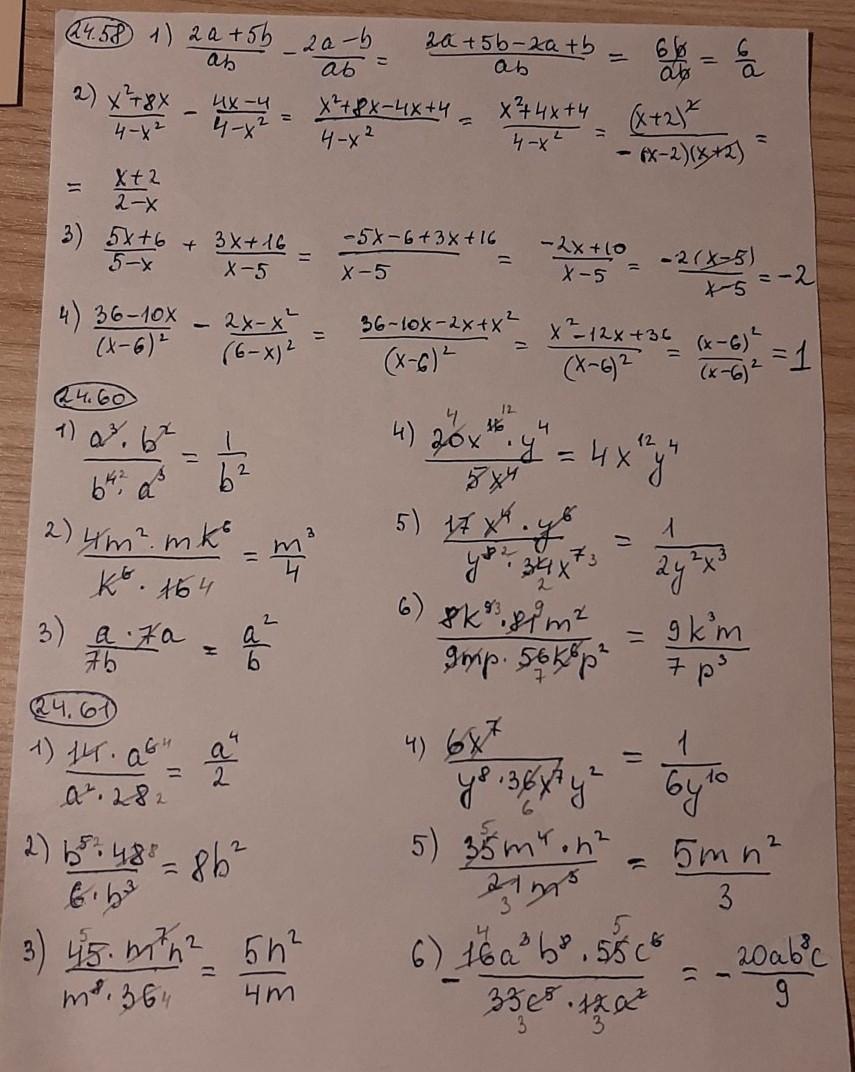 24.58 1) (2a+5b)/(ab) - (2a-b)/(ab) = (2a+5b-2a+b)/(ab) = (6b)/(ab) = 6/a
2) (x²+8x)/(4-x²) - (4x-4)/(4-x²) = (x²+8x-4x+4)/(4-x²) = (x²+4x+4)/(4-x²) = (x+2)²/(-(x-2)(x+2)) =
= (x+2)/(2-x)
3) (5x+6)/(5-x) + (3x+16)/(x-5) = (-5x-6+3x+16)/(x-5) = (-2x+10)/(x-5) = (-2(x-5))/(x-5) = -2
4) (36-10x)/(x-6)² - (2x-x²)/(6-x)² = (36-10x-2x+x²)/(x-6)² = (x²-12x+36)/(x-6)² = (x-6)²/(x-6)² = 1
24.60
1) (a³·b²)/(b⁴·a³) = 1/b²
2) (4m²·mk⁶)/(k⁶·16) = m³/4
3) (a·7a)/(7b) = a²/b
4) (20x¹⁶·y⁴)/(5x⁴) = 4x¹²y⁴
5) (17x⁴·y⁶)/(y⁸·34x⁷) = 1/(2y²x³)
6) (8k⁹·81m²)/(9mp·56k⁶p²) = (9k³m)/(7p³)
24.61
1) (14·a⁶)/(a²·28) = a⁴/2
2) (b⁵·48)/(6·b³) = 8b²
3) (45·m⁷n²)/(m⁸·36) = 5n²/4m
4) (6x⁷)/(y⁸·36x⁷y²) = 1/(6y¹⁰)
5) (35m⁴·n²)/(21m⁵) = (5mn²)/3
6) -(16a³b⁸·55c⁶)/(33c⁵·12a²) = -(20ab⁸c)/9